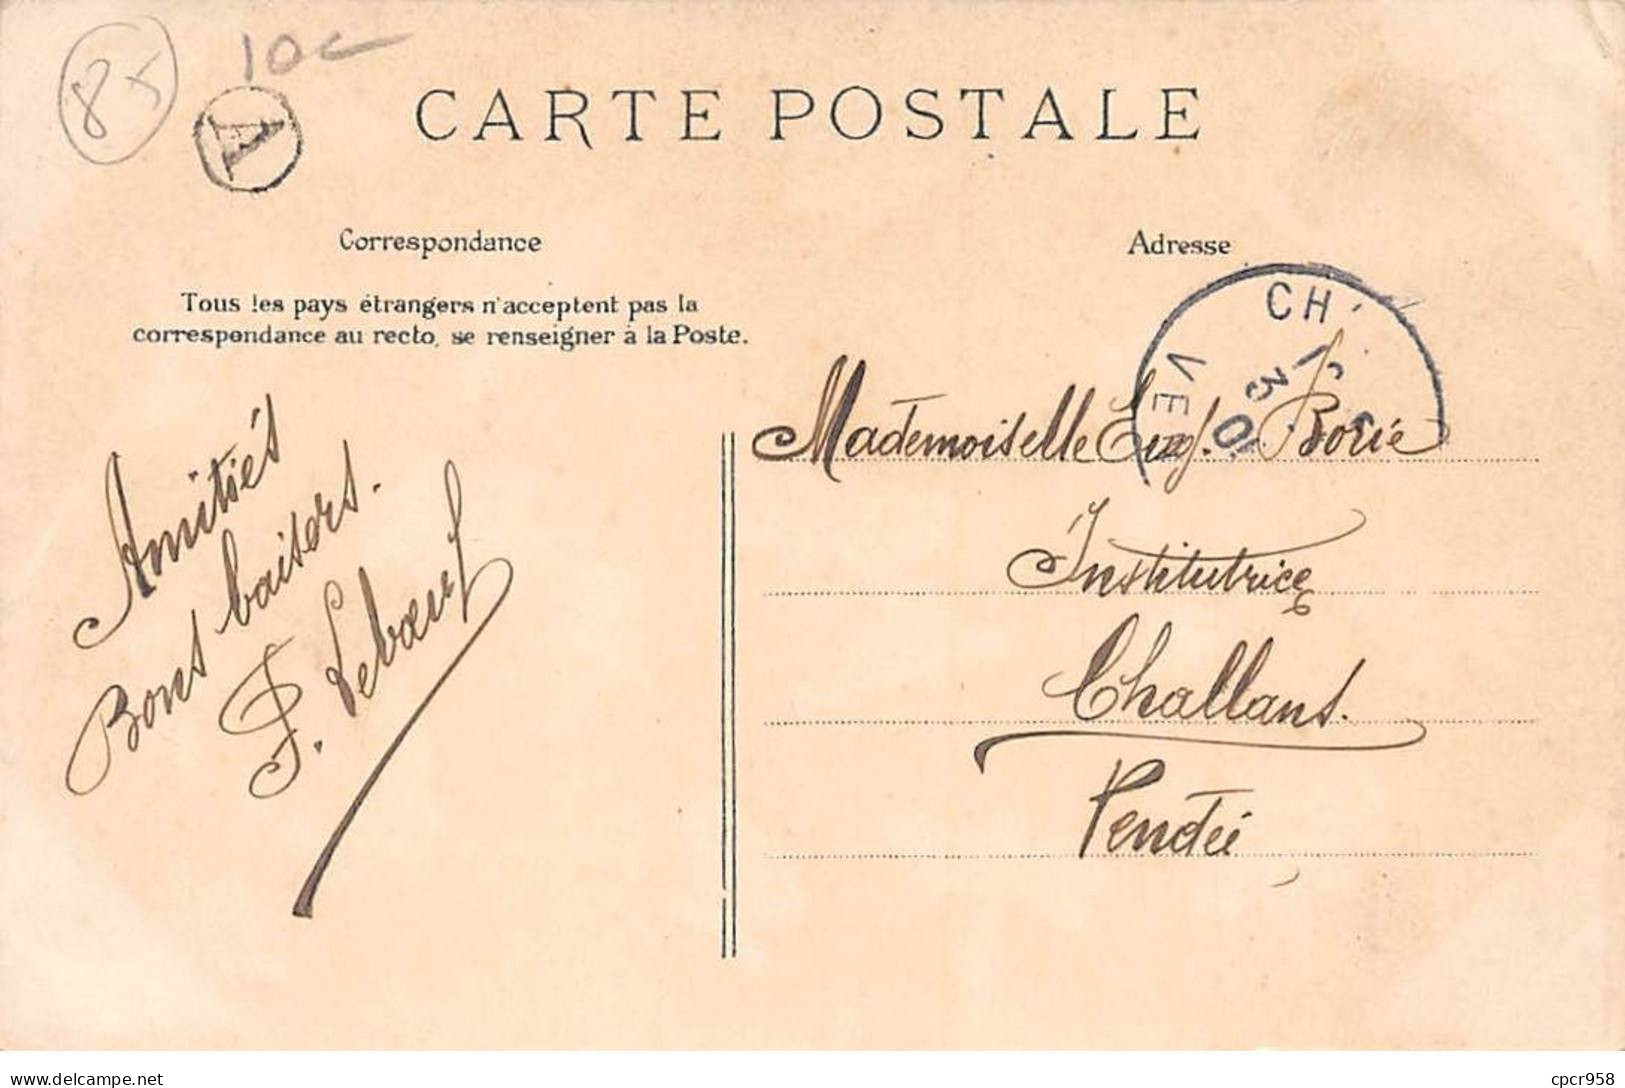 85
10c
A
CARTE POSTALE
Correspondance
Adresse
Tous les pays étrangers n'acceptent pas la
correspondance au recto, se renseigner à la Poste.
CH
VE
Amitiés
Bons baisers.
F. Lebœuf
Mademoiselle Eug. Borié
Institutrice
Challans.
Vendée
delcampe.net
cpcr958